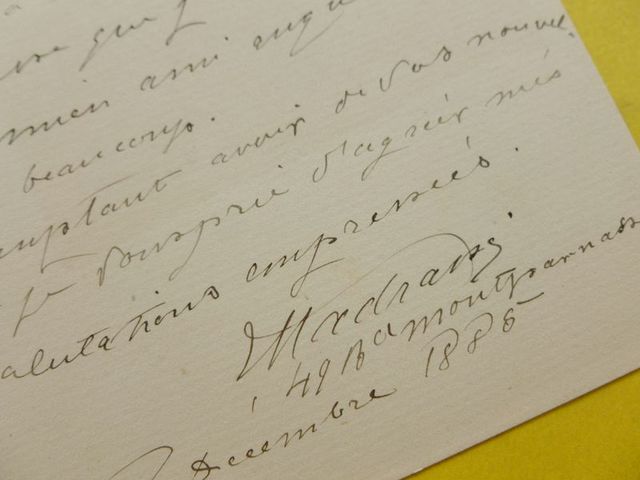 que
mien ami
beaucoup.
comptant avoir de vos nouvel-
Je vous prie d'agréer mes
salutations empressées.
Medrano
49 Bd Montparnasse
Decembre 1885